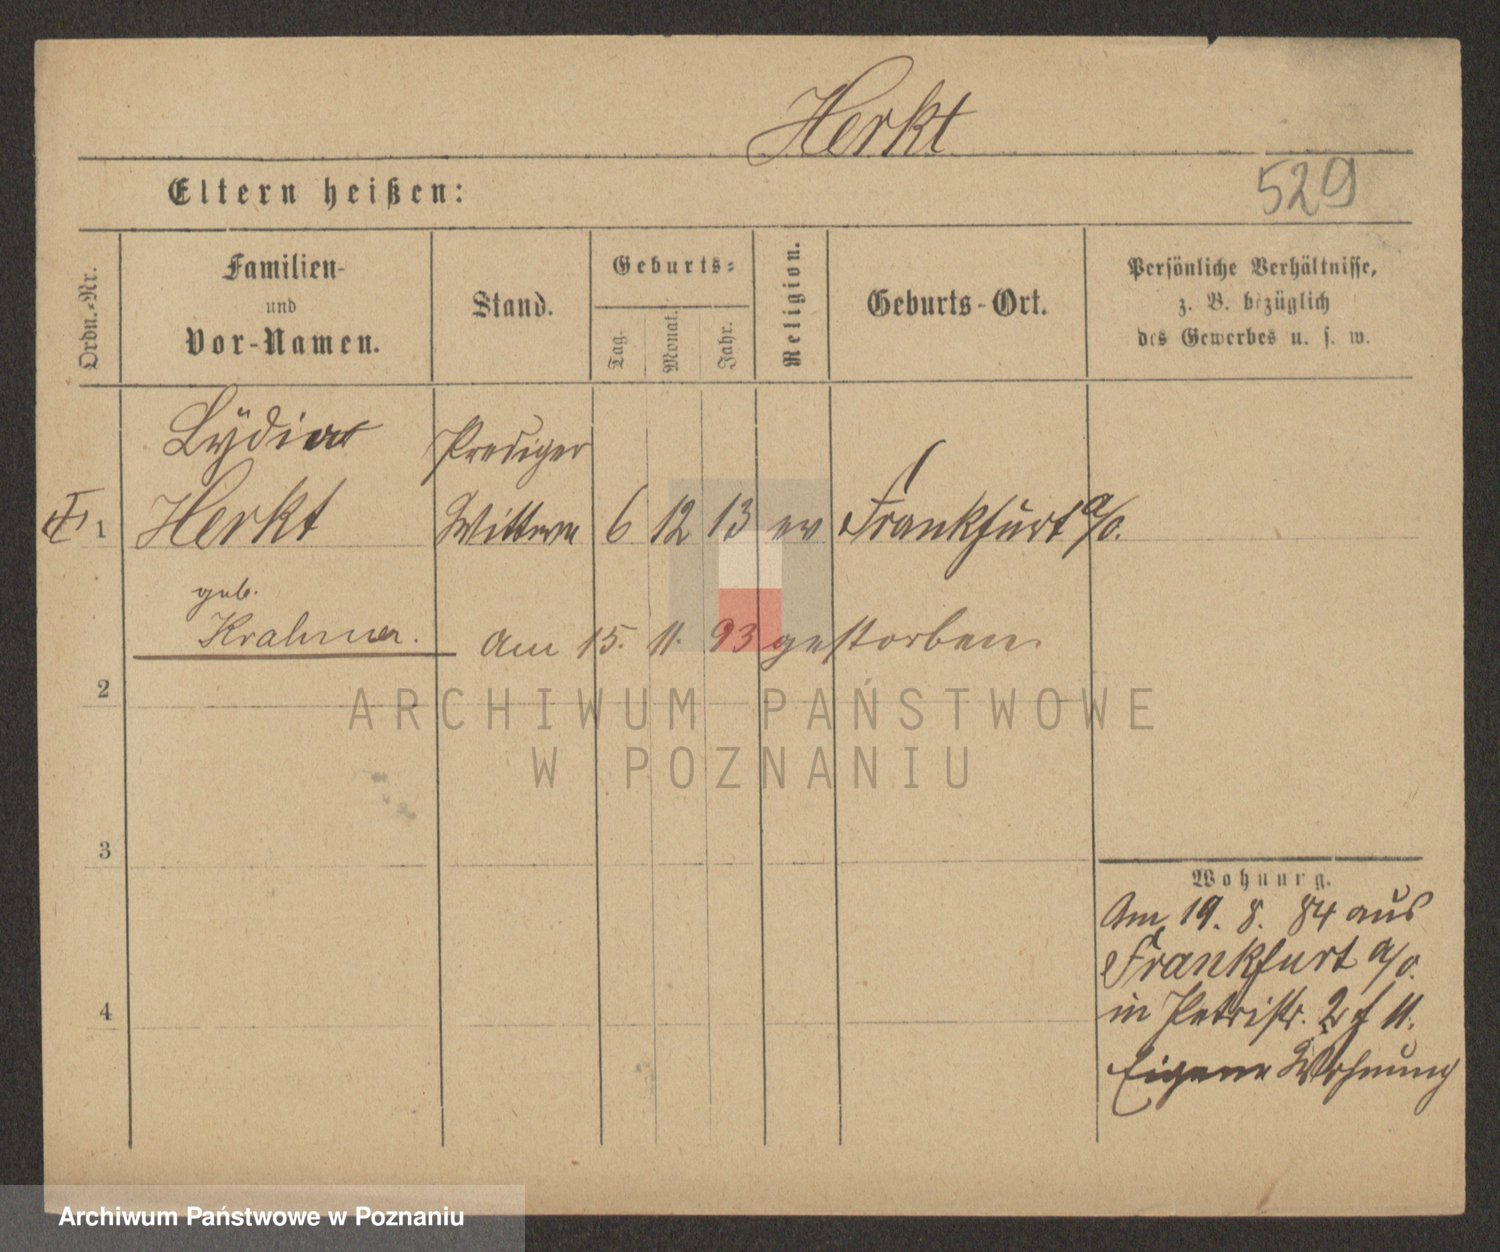 Herkt
529
Eltern heißen:
Ordn.-Nr.
Familien-
und
Vor-Namen.
Stand.
Geburts-
Tag.
Monat.
Jahr.
Religion.
Geburts-Ort.
Persönliche Verhältnisse,
z. B. bezüglich
des Gewerbes u. s. w.
Lydia Prediger
1 Herkt Wittwe 6 12 13 ev Frankfurt a/O.
geb.
Krahmer. Am 15. 11. 93 gestorben.
2
ARCHIWUM PAŃSTWOWE
W POZNANIU
3
Wohnung.
Am 19. 8. 84 aus
Frankfurt a/O.
in Petristr. 2 11.
4
Eigene Wohnung
Archiwum Państwowe w Poznaniu